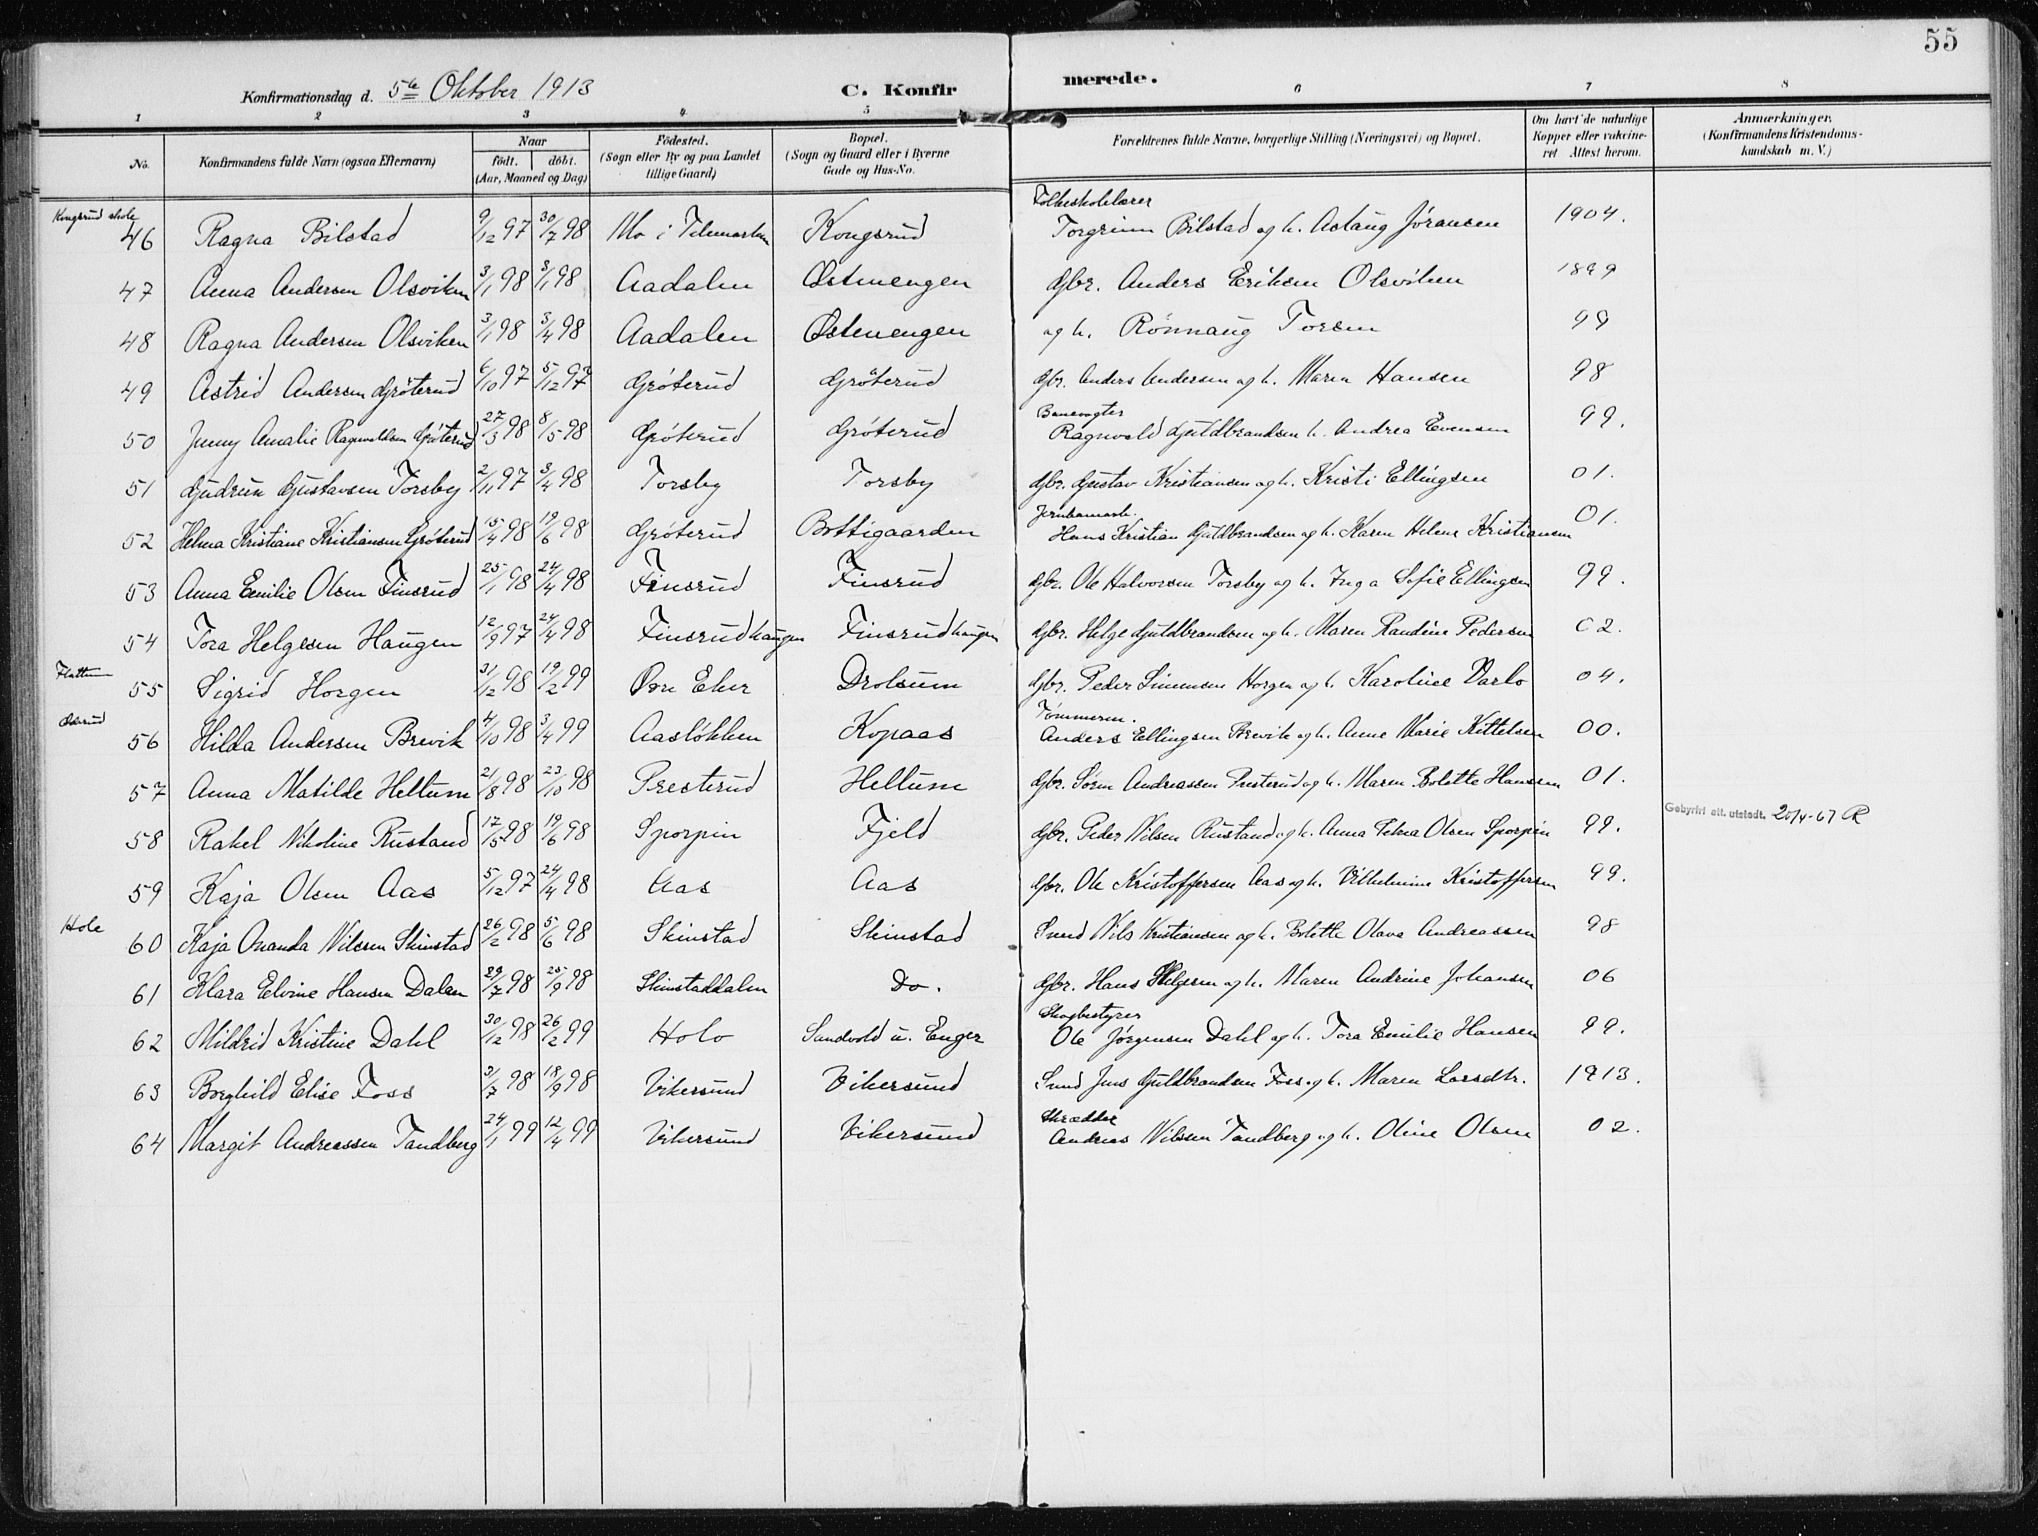 55
Konfirmationsdag d. 5te Oktober 1913
C. Konfirmerede.
1 2 3 4 5 6 7 8
No. Konfirmandens fulde Navn (ogsaa Efternavn) Naar født. døbt. (Aar, Maaned og Dag) Fødested. (Sogn eller By og paa Landet tillige Gaard) Bopæl. (Sogn og Gaard eller i Byerne Gade og Hus-No. Forældrenes fulde Navne, borgerlige Stilling (Næringsvei) og Bopæl. Om havt de naturlige Kopper eller vaccineret Attest herom. Anmærkninger. (Konfirmandens Kristendomskundskab m. V.)
Kongsrud skole
46 Ragna Bilstad 9/12 97 30/7 98 Mo i Telemarken Kongsrud Folkeskolelærer Torgrim Bilstad og h. Aslaug Jøransen 1904.
47 Anna Andersen Olsviken 3/1 98 3/1 98 Aadalen Østenengen Gbr. Anders Eriksen Olsviken 1899
48 Ragna Andersen Olsviken 3/1 98 3/4 98 Aadalen Østenengen og h. Rønnaug Torsen 99
49 Astrid Andersen Grøterud 6/10 97 5/12 97 Grøterud Grøterud Gbr. Anders Andersen og h. Maren Hansen 98
50 Jenny Amalie Ragnvaldsen Grøterud 27/3 98 8/5 98 Grøterud Grøterud Banevogter Ragnvald Guldbrandsen h. Andrea Evensen 99.
51 Gudrun Gustavsen Torsby 2/11 97 3/4 98 Torsby Torsby Gbr. Gustav Kristiansen og h. Kristi Ellingsen 01.
52 Helma Kristiane Kristiansen Grøterud 15/4 98 19/6 98 Grøterud Bottigaarden Jernbanearb. Hans Kristian Guldbrandsen og h. Karen Helene Kristiansen 01.
53 Anna Emilie Olsen Finsrud 25/1 98 24/4 98 Finsrud Finsrud Gbr. Ole Halvorsen Torsby og h. Inga Sofie Ellingsen 99.
54 Tora Helgesen Haugen 12/9 97 24/4 98 Finsrudhaugen Finsrudhaugen Gbr. Helge Guldbrandsen og h. Maren Randine Pedersen 02.
Flattum
55 Sigrid Horgen 31/12 98 19/2 99 Øvre Eker Drolsum Gbr. Peder Simensen Horgen og h. Karoline Varlo 04.
56 Hilda Andersen Brevik 4/10 98 3/4 99 Aasløkken Kopaas Tømmerm. Anders Ellingsen Brevik og h. Anne Marie Kittelsen 00.
57 Anna Matilde Hellum 21/8 98 23/10 98 Presterud Hellum Gbr. Søren Andreassen Presterud og h. Maren Bolette Hansen 01.
58 Rakel Nikoline Rustand 17/5 98 19/6 98 Sporpin Fjeld Gbr. Peder Nilsen Rustand og h. Anna Petrea Olsen Sporpin 99. Gebyrfri att. utstedt. 20/4-67 R
59 Kaja Olsen Aas 5/12 97 24/4 98 Aas Aas Gbr. Ole Kristoffersen Aas og h. Vilhelmine Kristoffersen 99.
Hole
60 Kaja Amanda Nilsen Skinstad 26/2 98 5/6 98 Skinstad Skinstad Smed Nils Kristiansen og h. Bolette Olava Andreassen 98
61 Klara Elvine Hansen Dalen 29/7 98 25/9 98 Skinstaddalen Do. Gbr. Hans Helgesen og h. Maren Andrine Johansen 06
62 Mildrid Kristine Dahl 30/12 98 26/2 99 Holo Sandvold u. Enger Skogbestyrer Ole Jørgensen Dahl og h. Tora Emilie Hansen 99.
63 Borghild Elise Foss 3/7 98 18/9 98 Vikersund Vikersund Smed Jens Guldbrandsen Foss og h. Maren Larsdtr. 1913.
64 Margit Andreassen Tandberg 24/1 99 12/4 99 Vikersund Vikersund Skrædder Andreas Nilsen Tandberg og h. Oline Olsen 02.